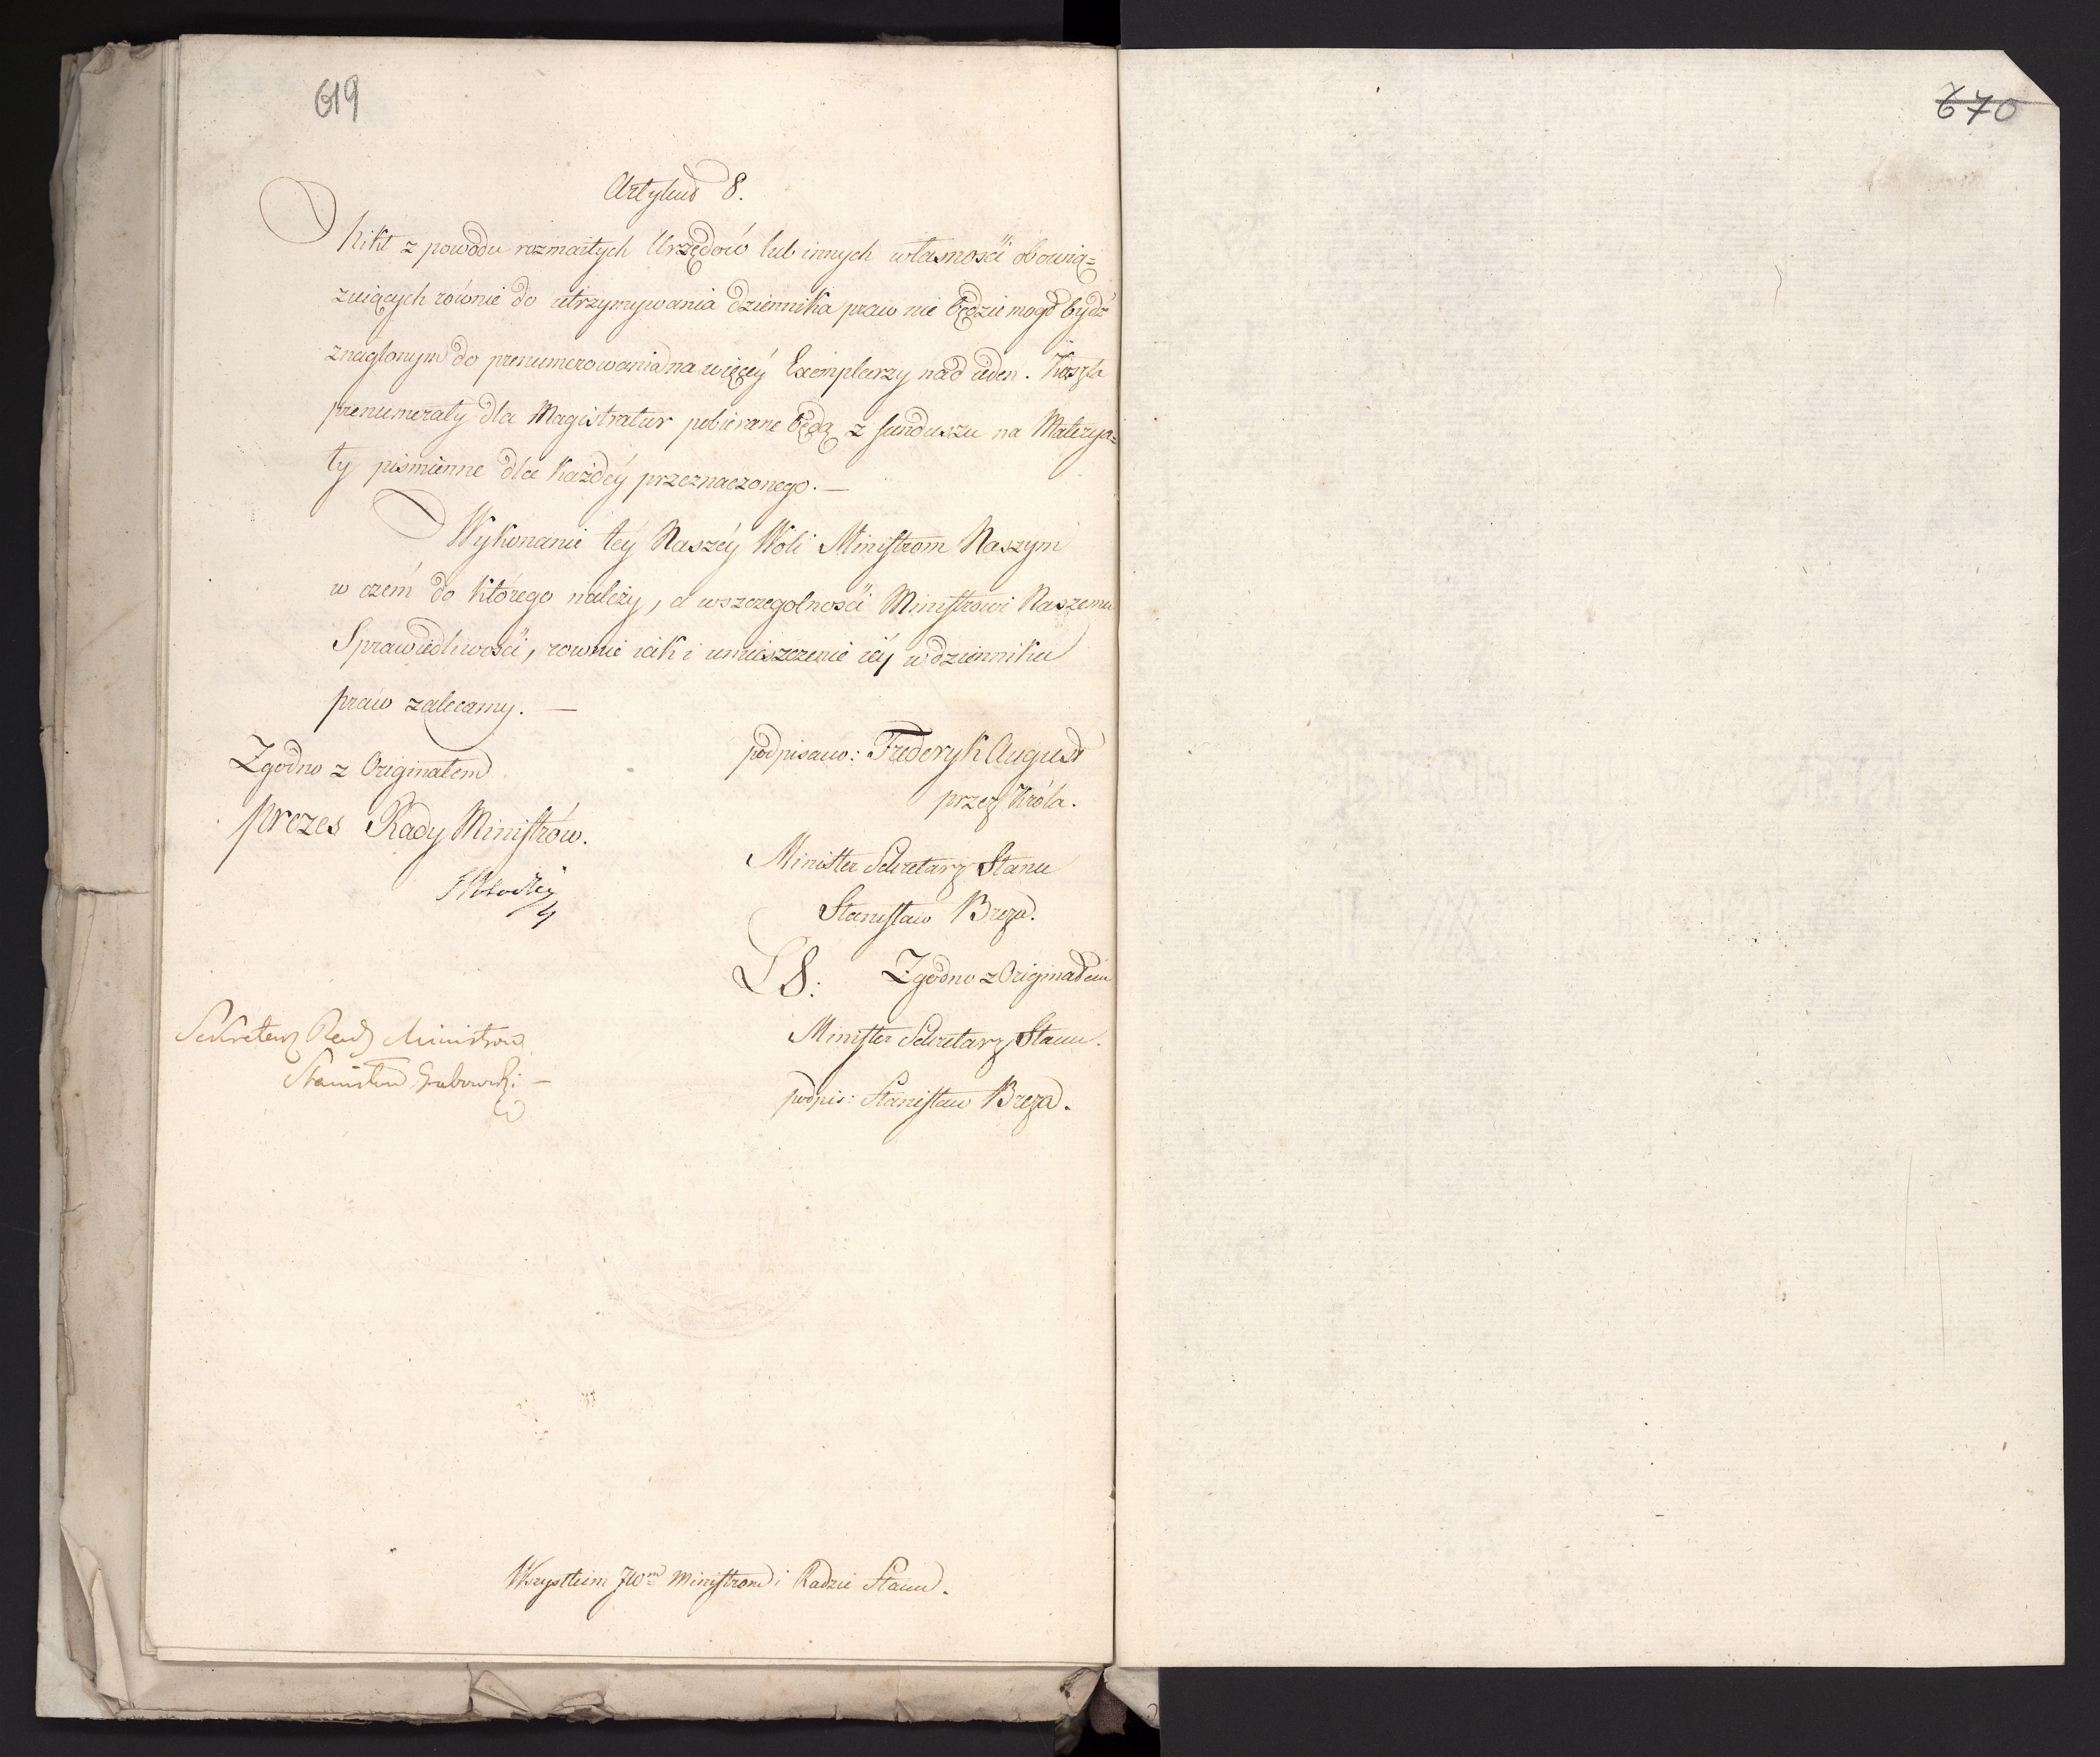 619
Artykuł 8.
Nikt z powodu rozmaitych Urzędów lub innych własności obowią=
zuiących równie do utrzymywania dziennika praw nie będzie mógł bydź
znaglonym do prenumerowania na więcéy Exemplarzy nad ieden. Koszta
prenumeraty dla Magistratur pobierane będą z funduszu na Materya=
ły piśmienne dla każdéy przeznaczonego. —
Wykonanie téy Naszéy Woli Ministrom Naszym
w czém do którego należy, a wszczegolności Ministrowi Naszemu
Sprawiedliwości, rownie iak i umieszczenie iéy w dzienniku
praw zalecamy. —
podpisano: Frideryk August
przez Króla.
Minister Sekretarz Stanu
Stanisław Breza.
LS: Zgodno z Originałem
Minister Sekretarz Stanu.
podpis: Stanisław Breza.
Zgodno z Originałem
prezes Rady Ministrów.
Sekretarz Rady Ministrow
Stanisław Grabowski —
Wszystkim JWm Ministrom i Radzie Stanu.
670